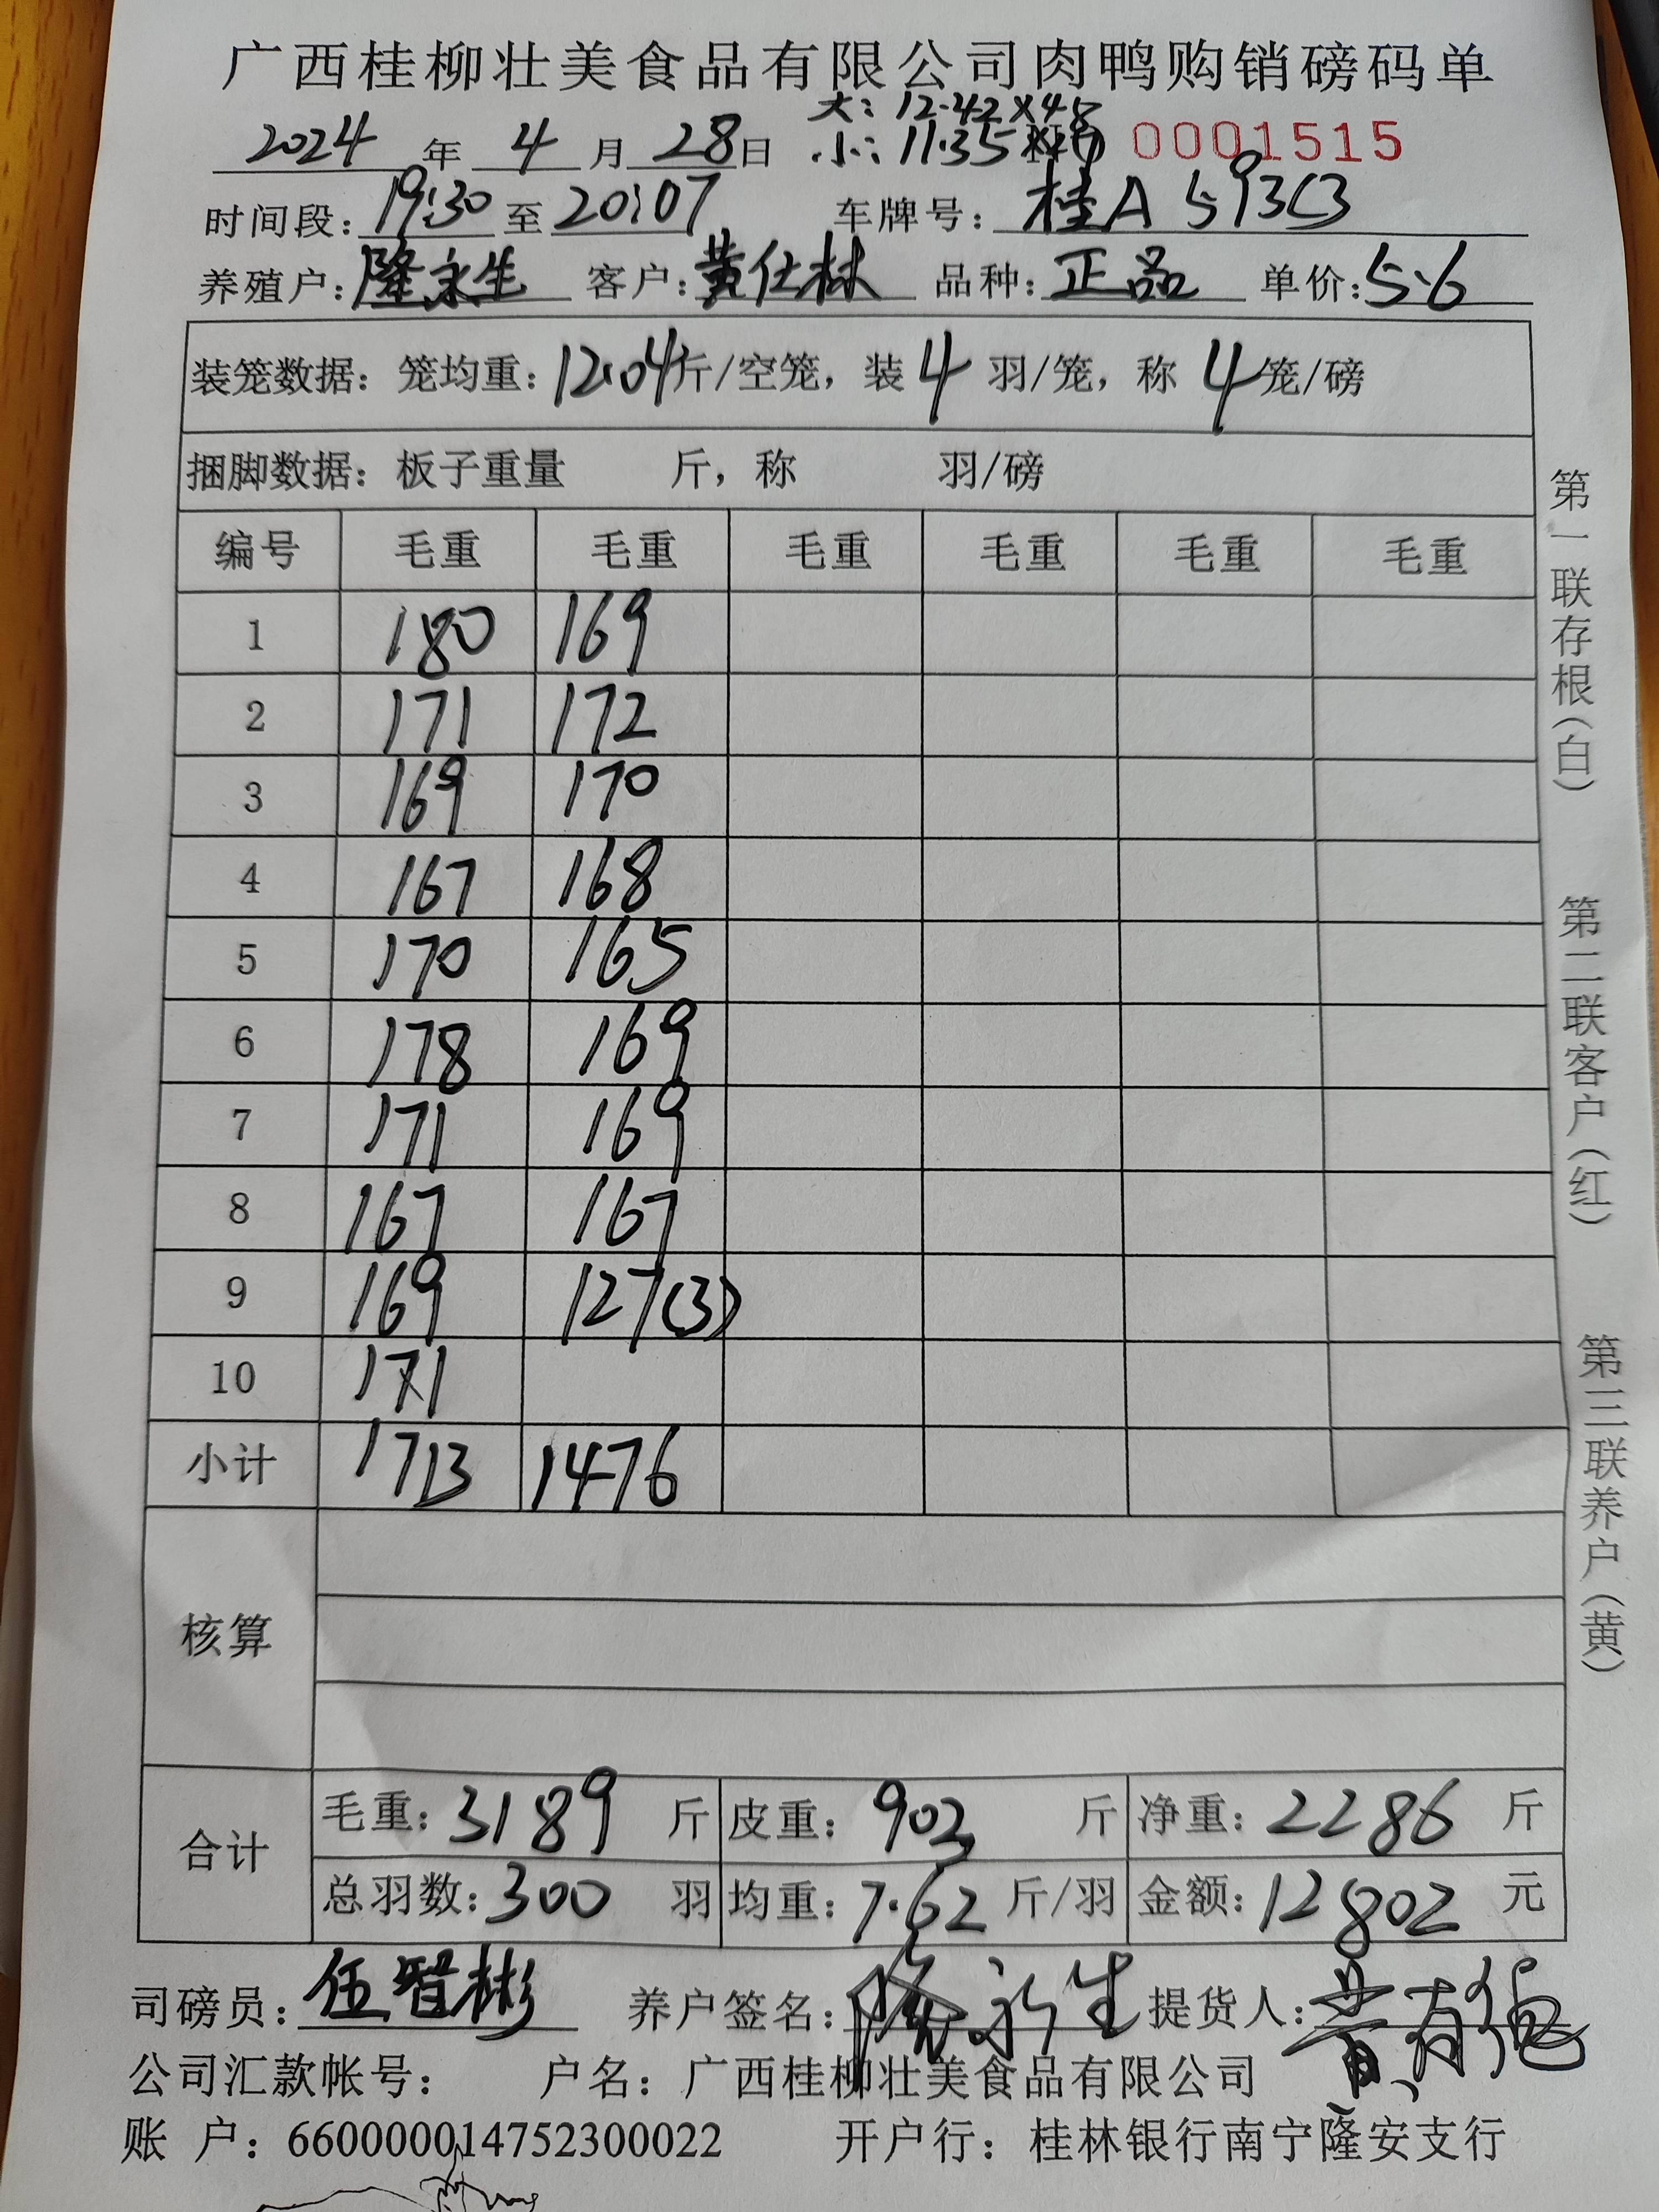 广西桂柳壮美食品有限公司肉鸭购销磅码单
大: 12.42×45
2024 年 4 月 28 日 小: 11.35 0001515
时间段: 19:30 至 20:07 车牌号: 桂A 593C3
养殖户: 隆永生 客户: 黄仕林 品种: 正品 单价: 5.6
装笼数据: 笼均重: 12.04 斤/空笼, 装 4 羽/笼, 称 4 笼/磅
捆脚数据: 板子重量 斤, 称 羽/磅
编号 毛重 毛重 毛重 毛重 毛重 毛重
1 180 169
2 171 172
3 169 170
4 167 168
5 170 165
6 178 169
7 171 169
8 167 167
9 169 127(3)
10 171
小计 1713 1476
核算
合计 毛重: 3189 斤 皮重: 903 斤 净重: 2286 斤
总羽数: 300 羽 均重: 7.62 斤/羽 金额: 12802 元
司磅员: 伍智彬 养户签名: 隆永生 提货人: 黄有
公司汇款帐号: 户名: 广西桂柳壮美食品有限公司
账 户: 660000014752300022 开户行: 桂林银行南宁隆安支行
第一联存根(白) 第二联客户(红) 第三联养户(黄)